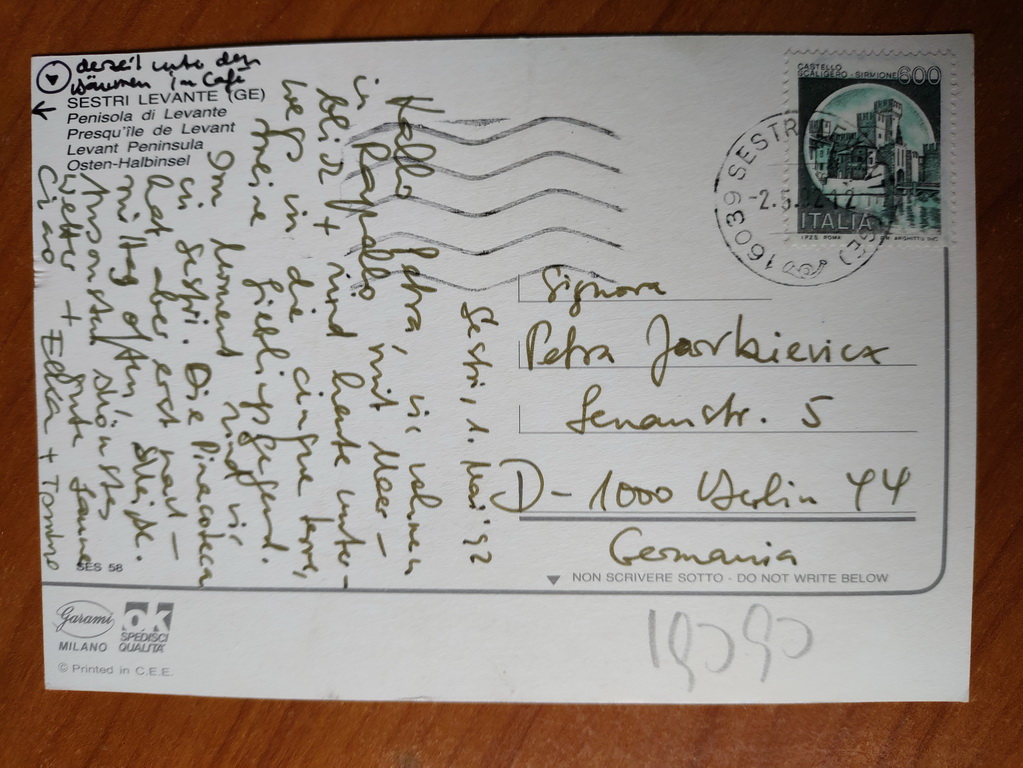 derzeit unter den
Bäumen im Café
SESTRI LEVANTE (GE)
Penisola di Levante
Presqu'île de Levant
Levant Peninsula
Osten-Halbinsel
Sestri, 1. Mai '92
Hallo Petra, wir wohnen
in Rapallo mit Meer-
blick + sind heute unter-
wegs in die cinque terre,
meine Lieblingsgegend.
Im Moment sind wir
in Sestri. Die Pinacoteca
hat aber erst nach-
mittag offen, Scheiße.
Ansonsten schönstes
Wetter + gute Laune
Ciao Elka +
CASTELLO
SCALIGERO - SIRMIONE 600
ITALIA
I.P.Z.S. ROMA
16039 SESTRI
-2.5.92
Signora
Petra Jaskievicz
5
D-1000 Berlin 44
Germania
SES 58
NON SCRIVERE SOTTO - DO NOT WRITE BELOW
Garami
MILANO
ok
SPEDISCI
QUALITÀ
© Printed in C.E.E.